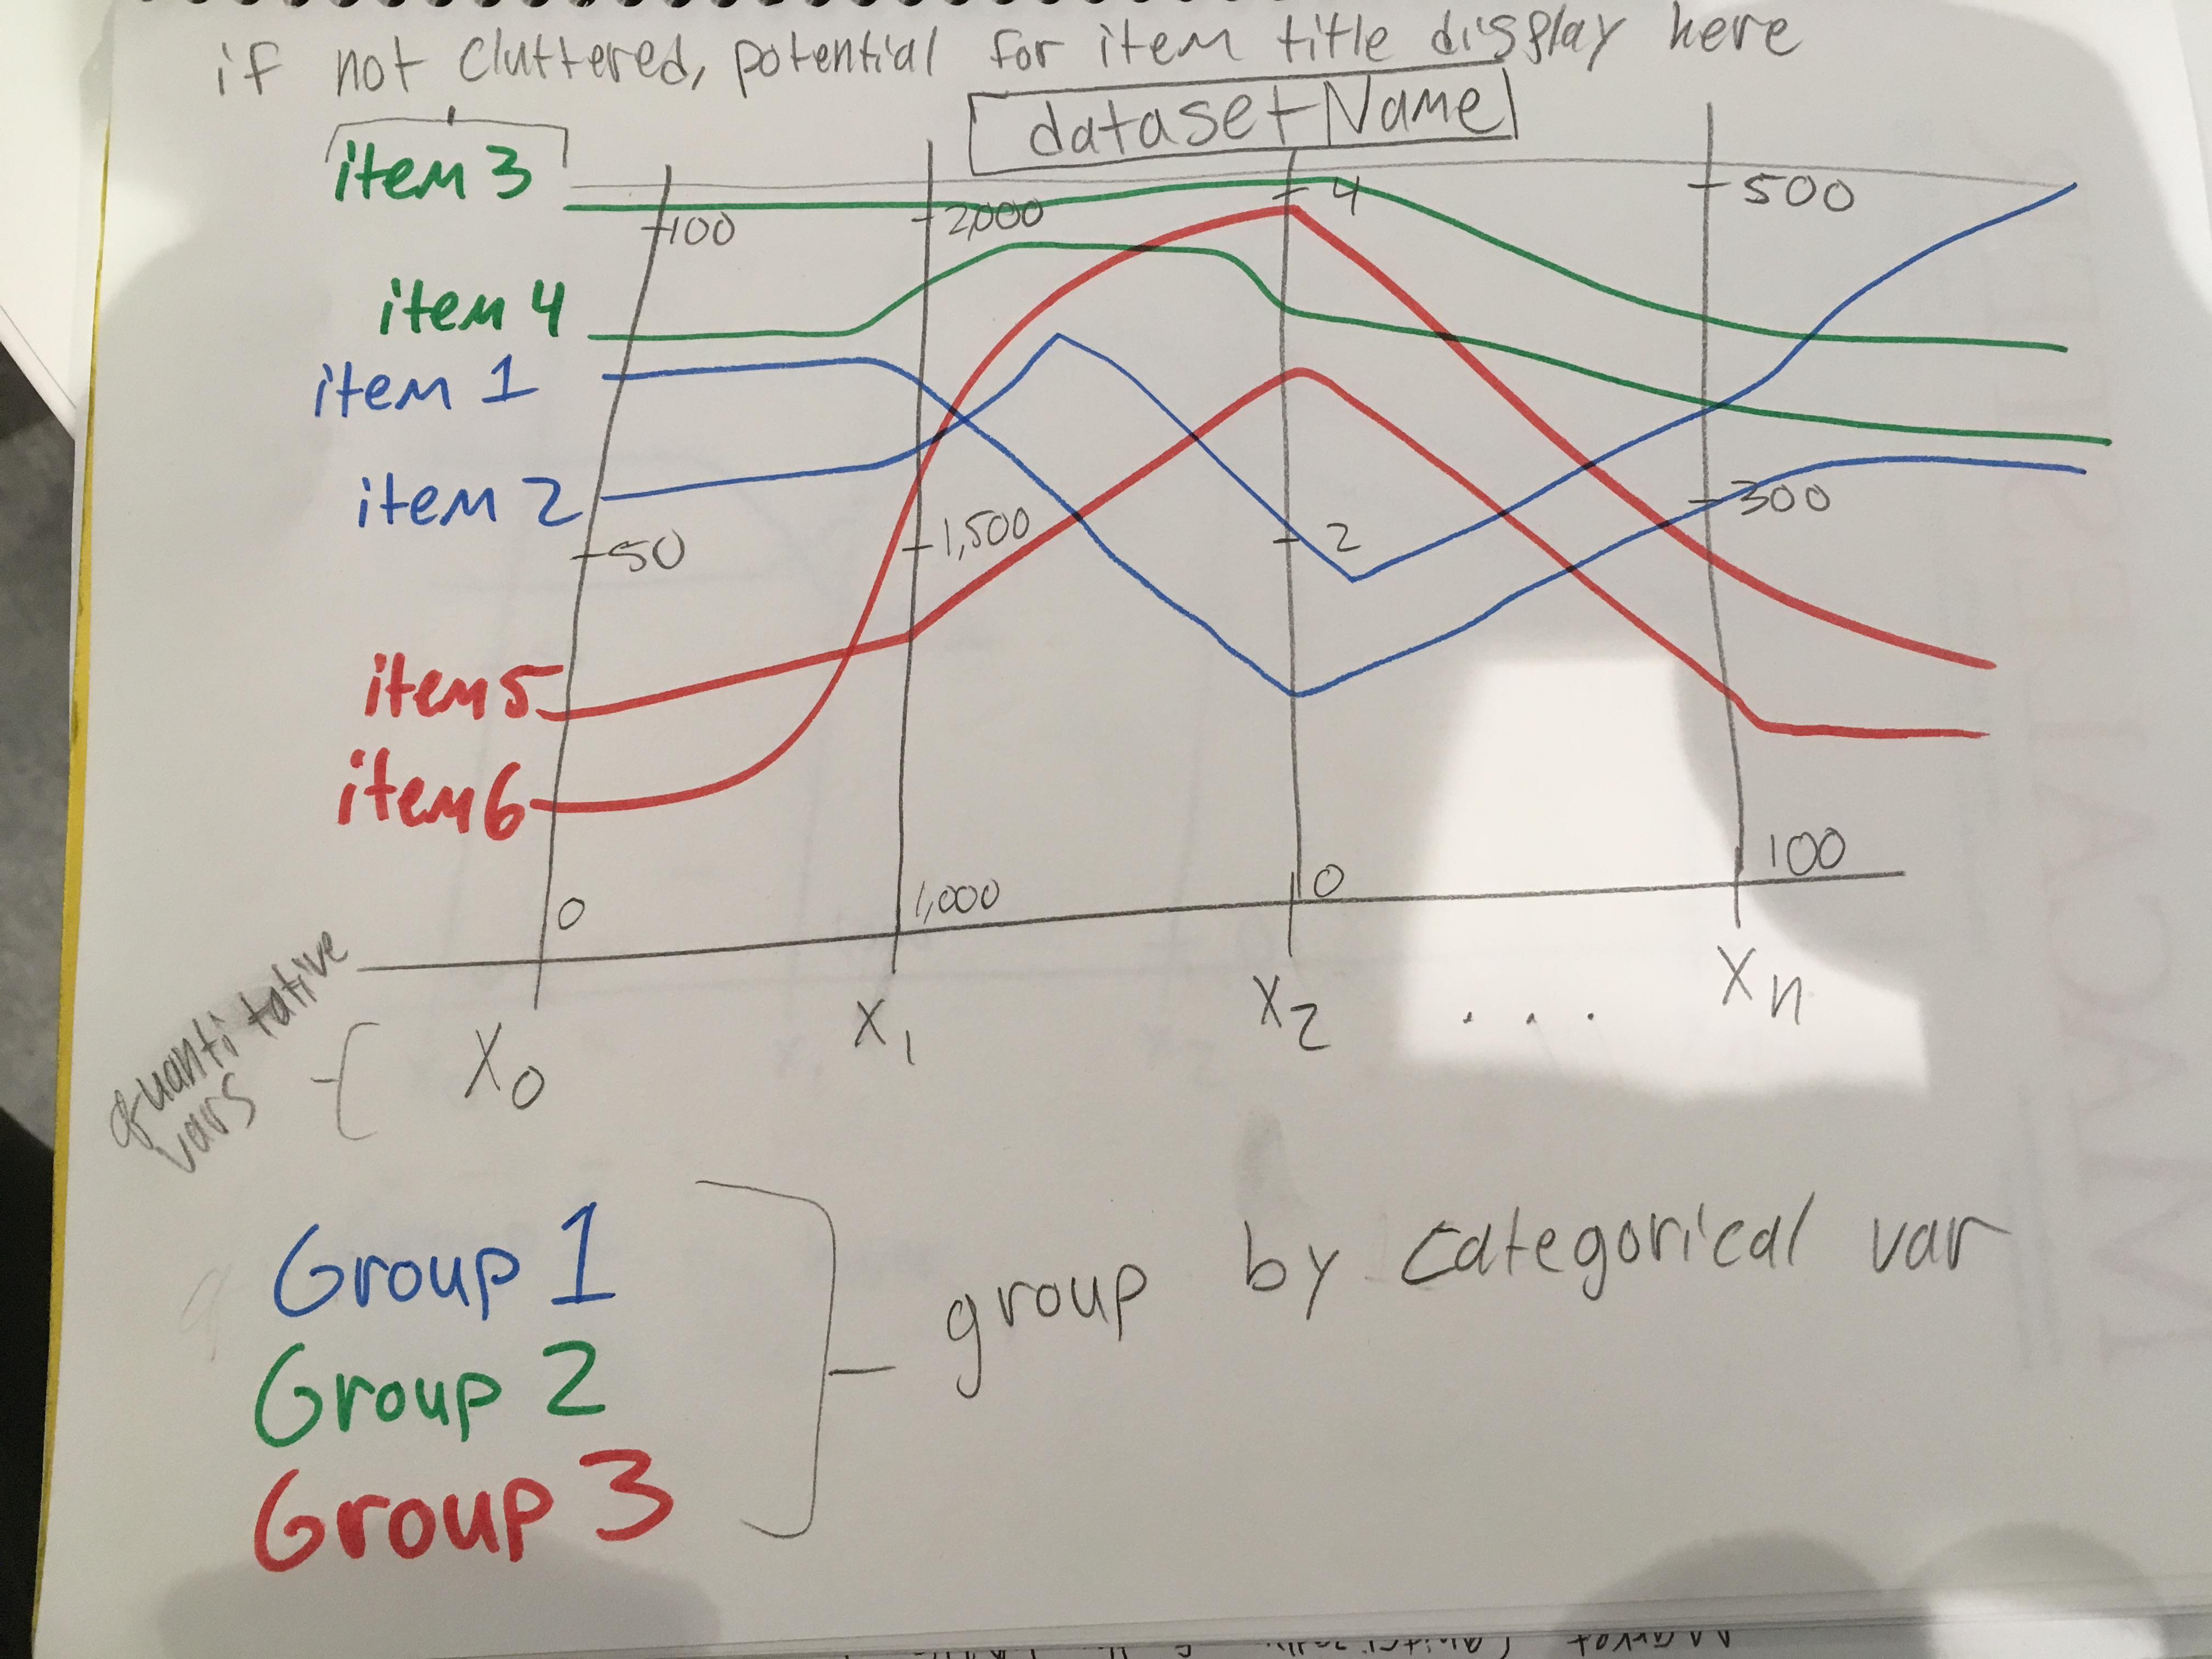 if not cluttered, potential for item title display here
dataset Name
item 3
item 4
item 1
item 2
item 5
item 6
100
50
0
2000
1,500
1,000
4
2
0
500
300
100
quantitative
vars
X0
X1
X2
...
Xn
Group 1
Group 2
Group 3
group by categorical var
MACALESTER